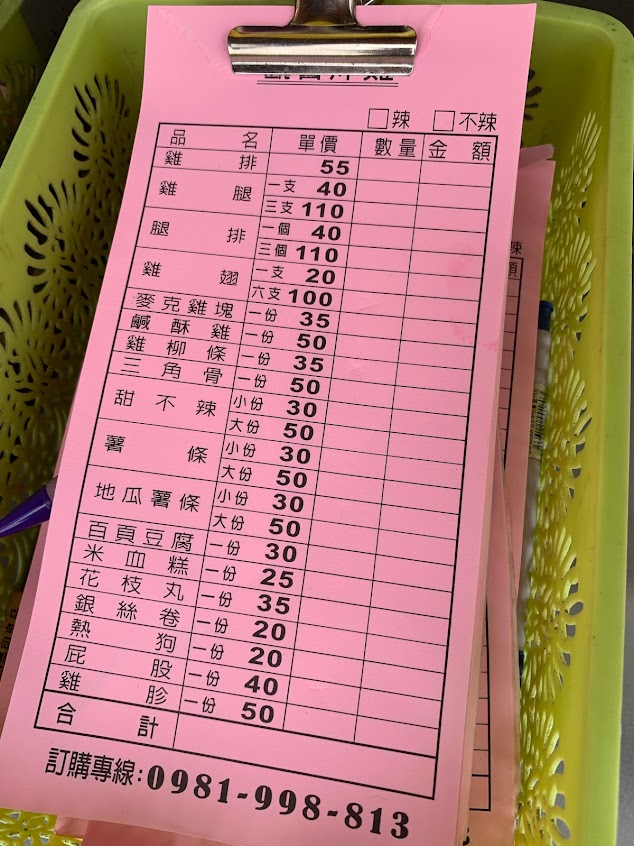 □辣 □不辣
品名 單價 數量 金額
雞排 55
雞腿 一支 40
三支 110
腿排 一個 40
三個 110
雞翅 一支 20
六支 100
麥克雞塊 一份 35
鹹酥雞 一份 50
雞柳條 一份 35
三角骨 一份 50
甜不辣 小份 30
大份 50
薯條 小份 30
大份 50
地瓜薯條 小份 30
大份 50
百頁豆腐 一份 30
米血糕 一份 25
花枝丸 一份 35
銀絲卷 一份 20
熱狗 一份 20
屁股 一份 40
雞胗 一份 50
合計
訂購專線:0981-998-813
辣
額